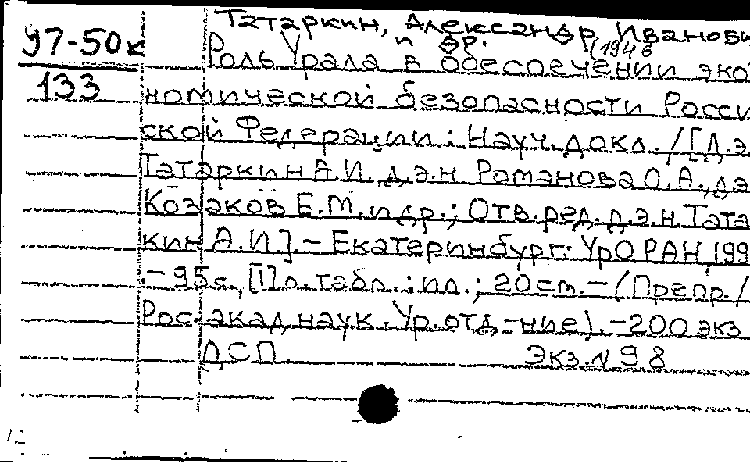 Татаркин, Александр Иванови
97-50к
и др. (1946
Роль Урала в обеспечении эко
133
номической безопасности Росси
ской Федерации: Науч. докл. / [Д.э.
Татаркин А.И., д.э.н. Романова О.А., д.э
Козаков Е.М. и др.; Отв. ред. д.э.н. Тата
кин А.И.]. - Екатеринбург: УрО РАН, 199
- 95 с., [1] л. табл.: ил.; 20 см. - (Препр./
Рос. акад. наук. Ур. отд-ние). - 200 экз
ДСП Экз. N 98
12